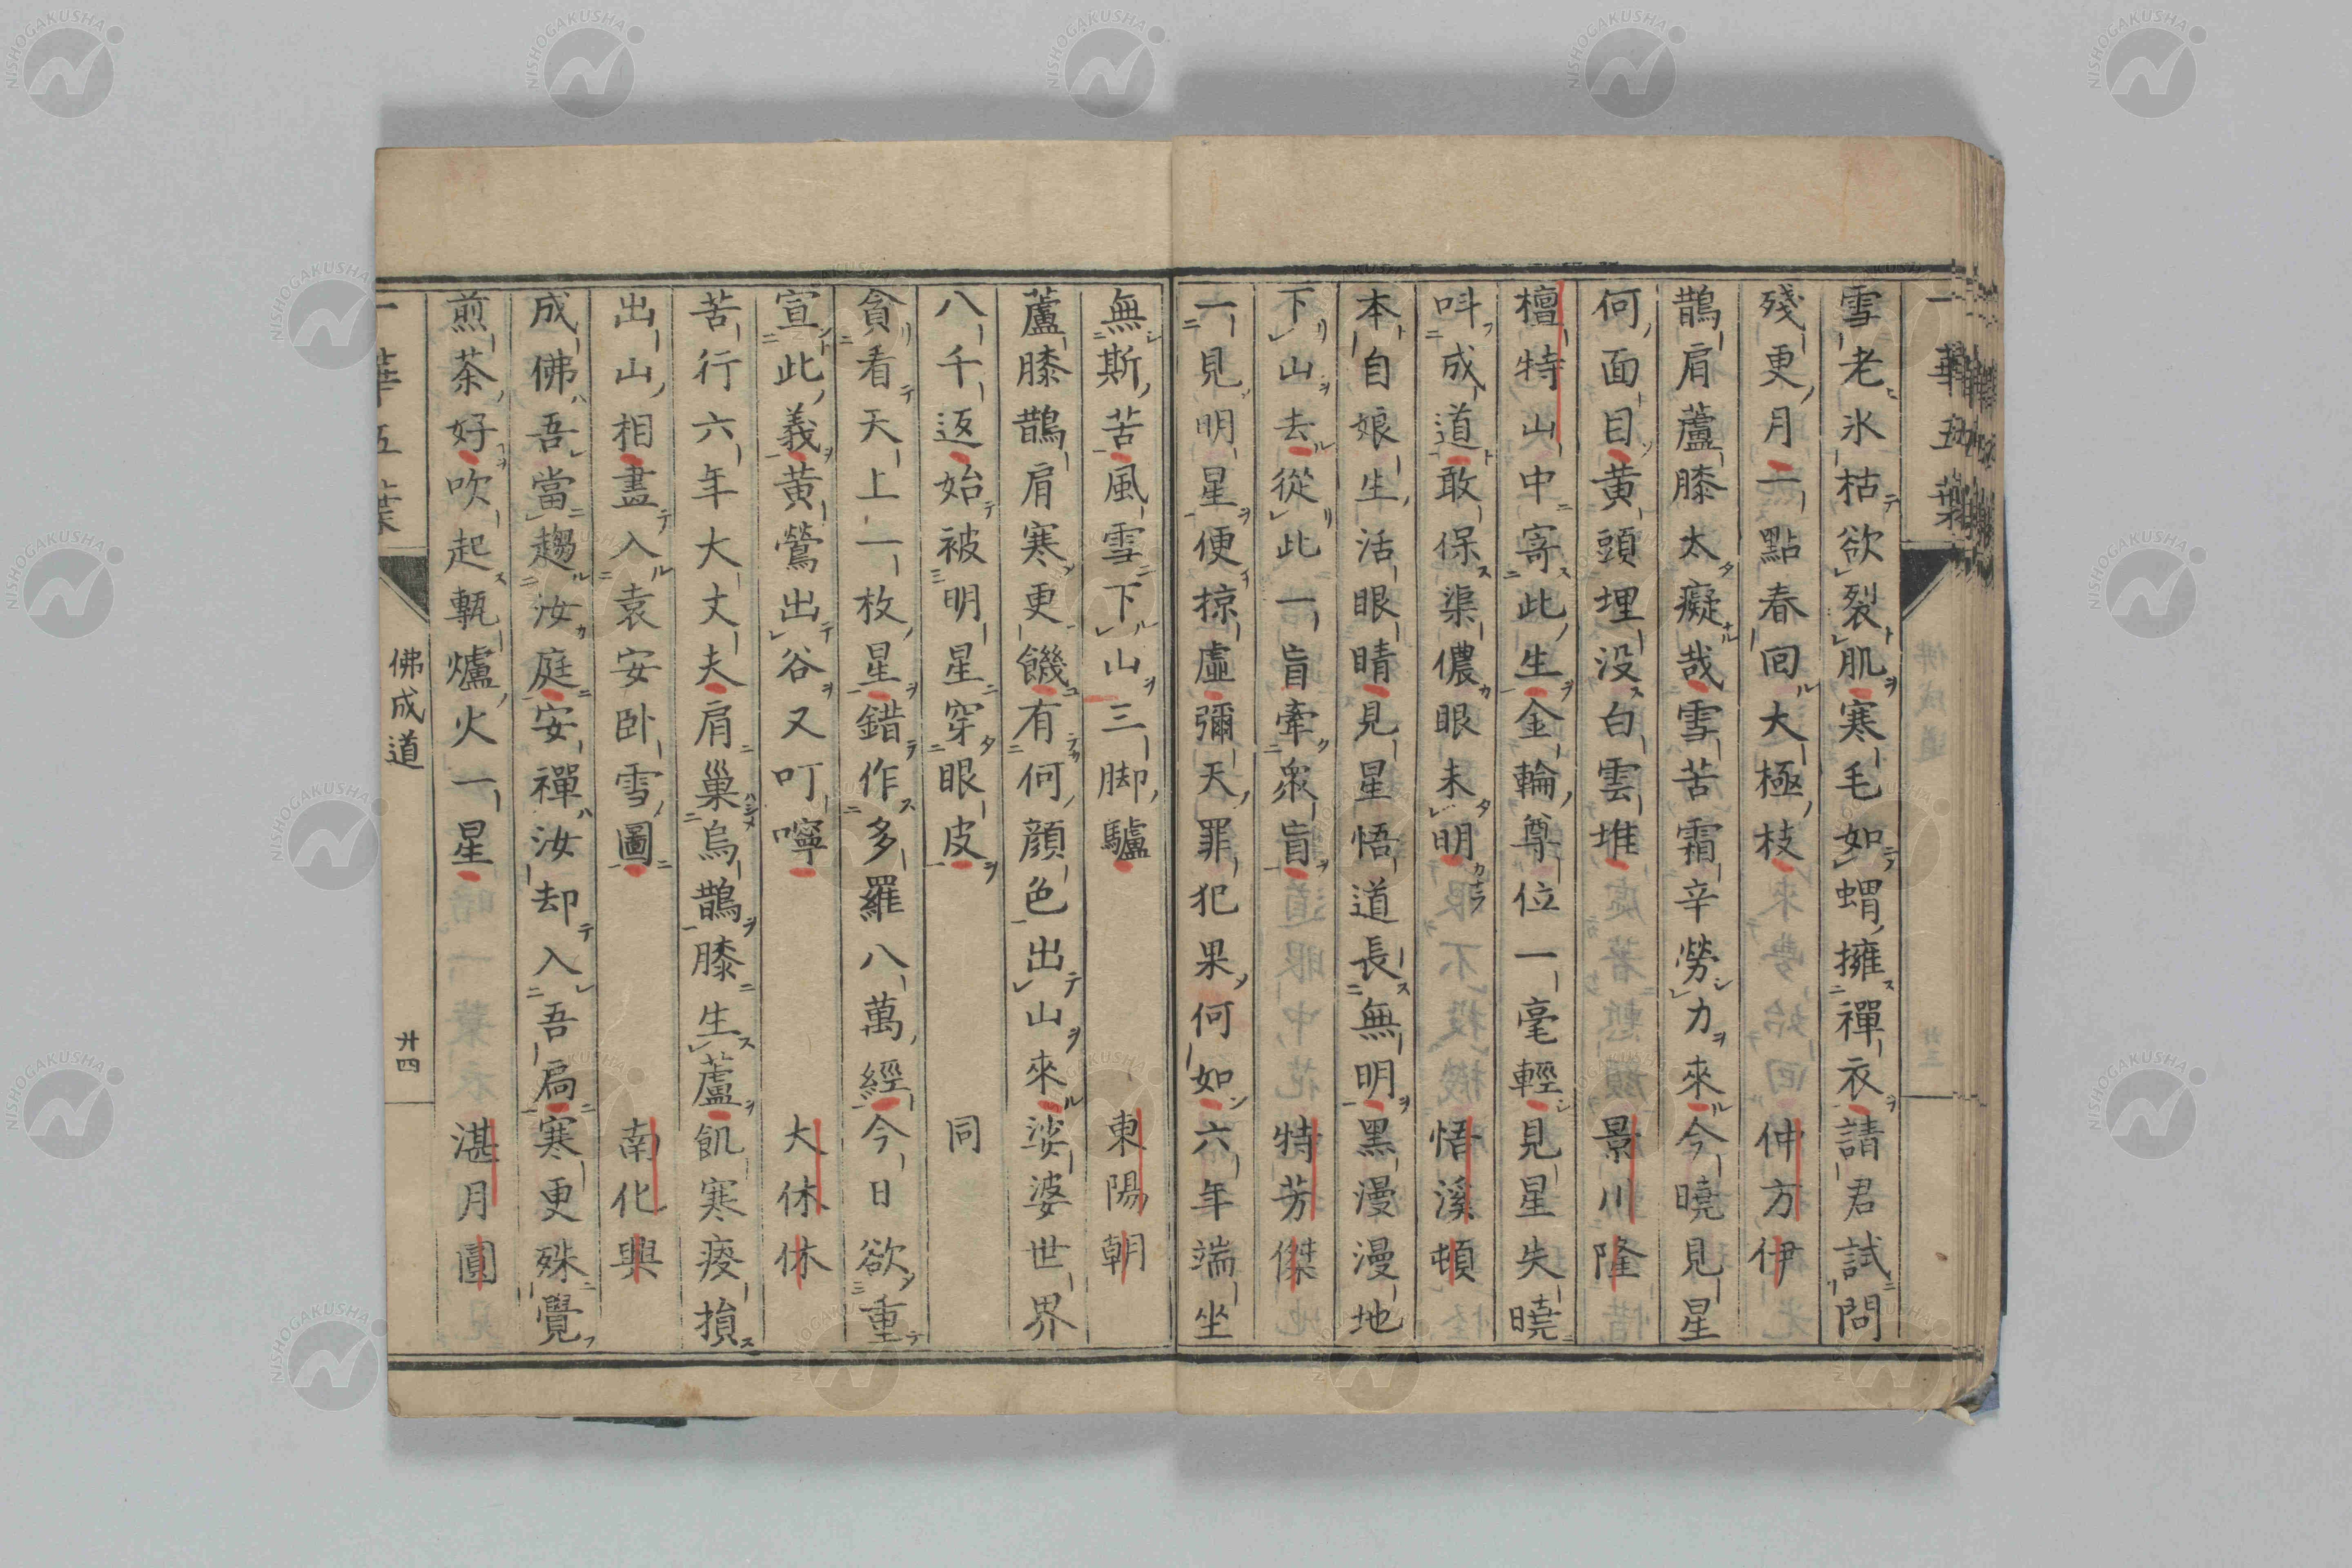 雪老氷枯欲裂肌寒毛如蝟擁禪衣請君試問
殘更月二點春回大極枝仲方伊
鵲肩蘆膝太癡哉雪苦霜辛勞力來今曉見星
何面目黄頭埋没白雲堆景川隆
檀特山中寄此生金輪尊位一毫輕見星失曉
呌成道敢保渠儂眼未明悟溪頓
本自娘生活眼睛見星悟道長無明黑漫漫地
下山去從此一盲牽衆盲特芳傑
一見明星便掠虛彌天罪犯果何如六年端坐
無斯苦風雪下山三脚驢東陽朝
蘆膝鵲肩寒更饑有何顔色出山來娑婆世界
八千返始被明星穿眼皮同
貪看天上一枚星錯作多羅八萬經今日欲重
宣此義黄鶯出谷又叮嚀大休休
苦行六年大丈夫肩巢烏鵲膝生蘆飢寒瘦損
出山相盡入袁安臥雪圖南化興
成佛吾當趨汝庭安禪汝却入吾扃寒更殊覺
煎茶好吹起甎爐火一星湛月圓
一華五葉
佛成道
廿四